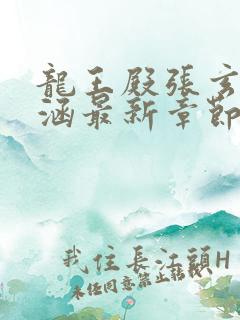 龍王殿張玄
涵最新章節
我住長江頭H
未经同意禁止转载